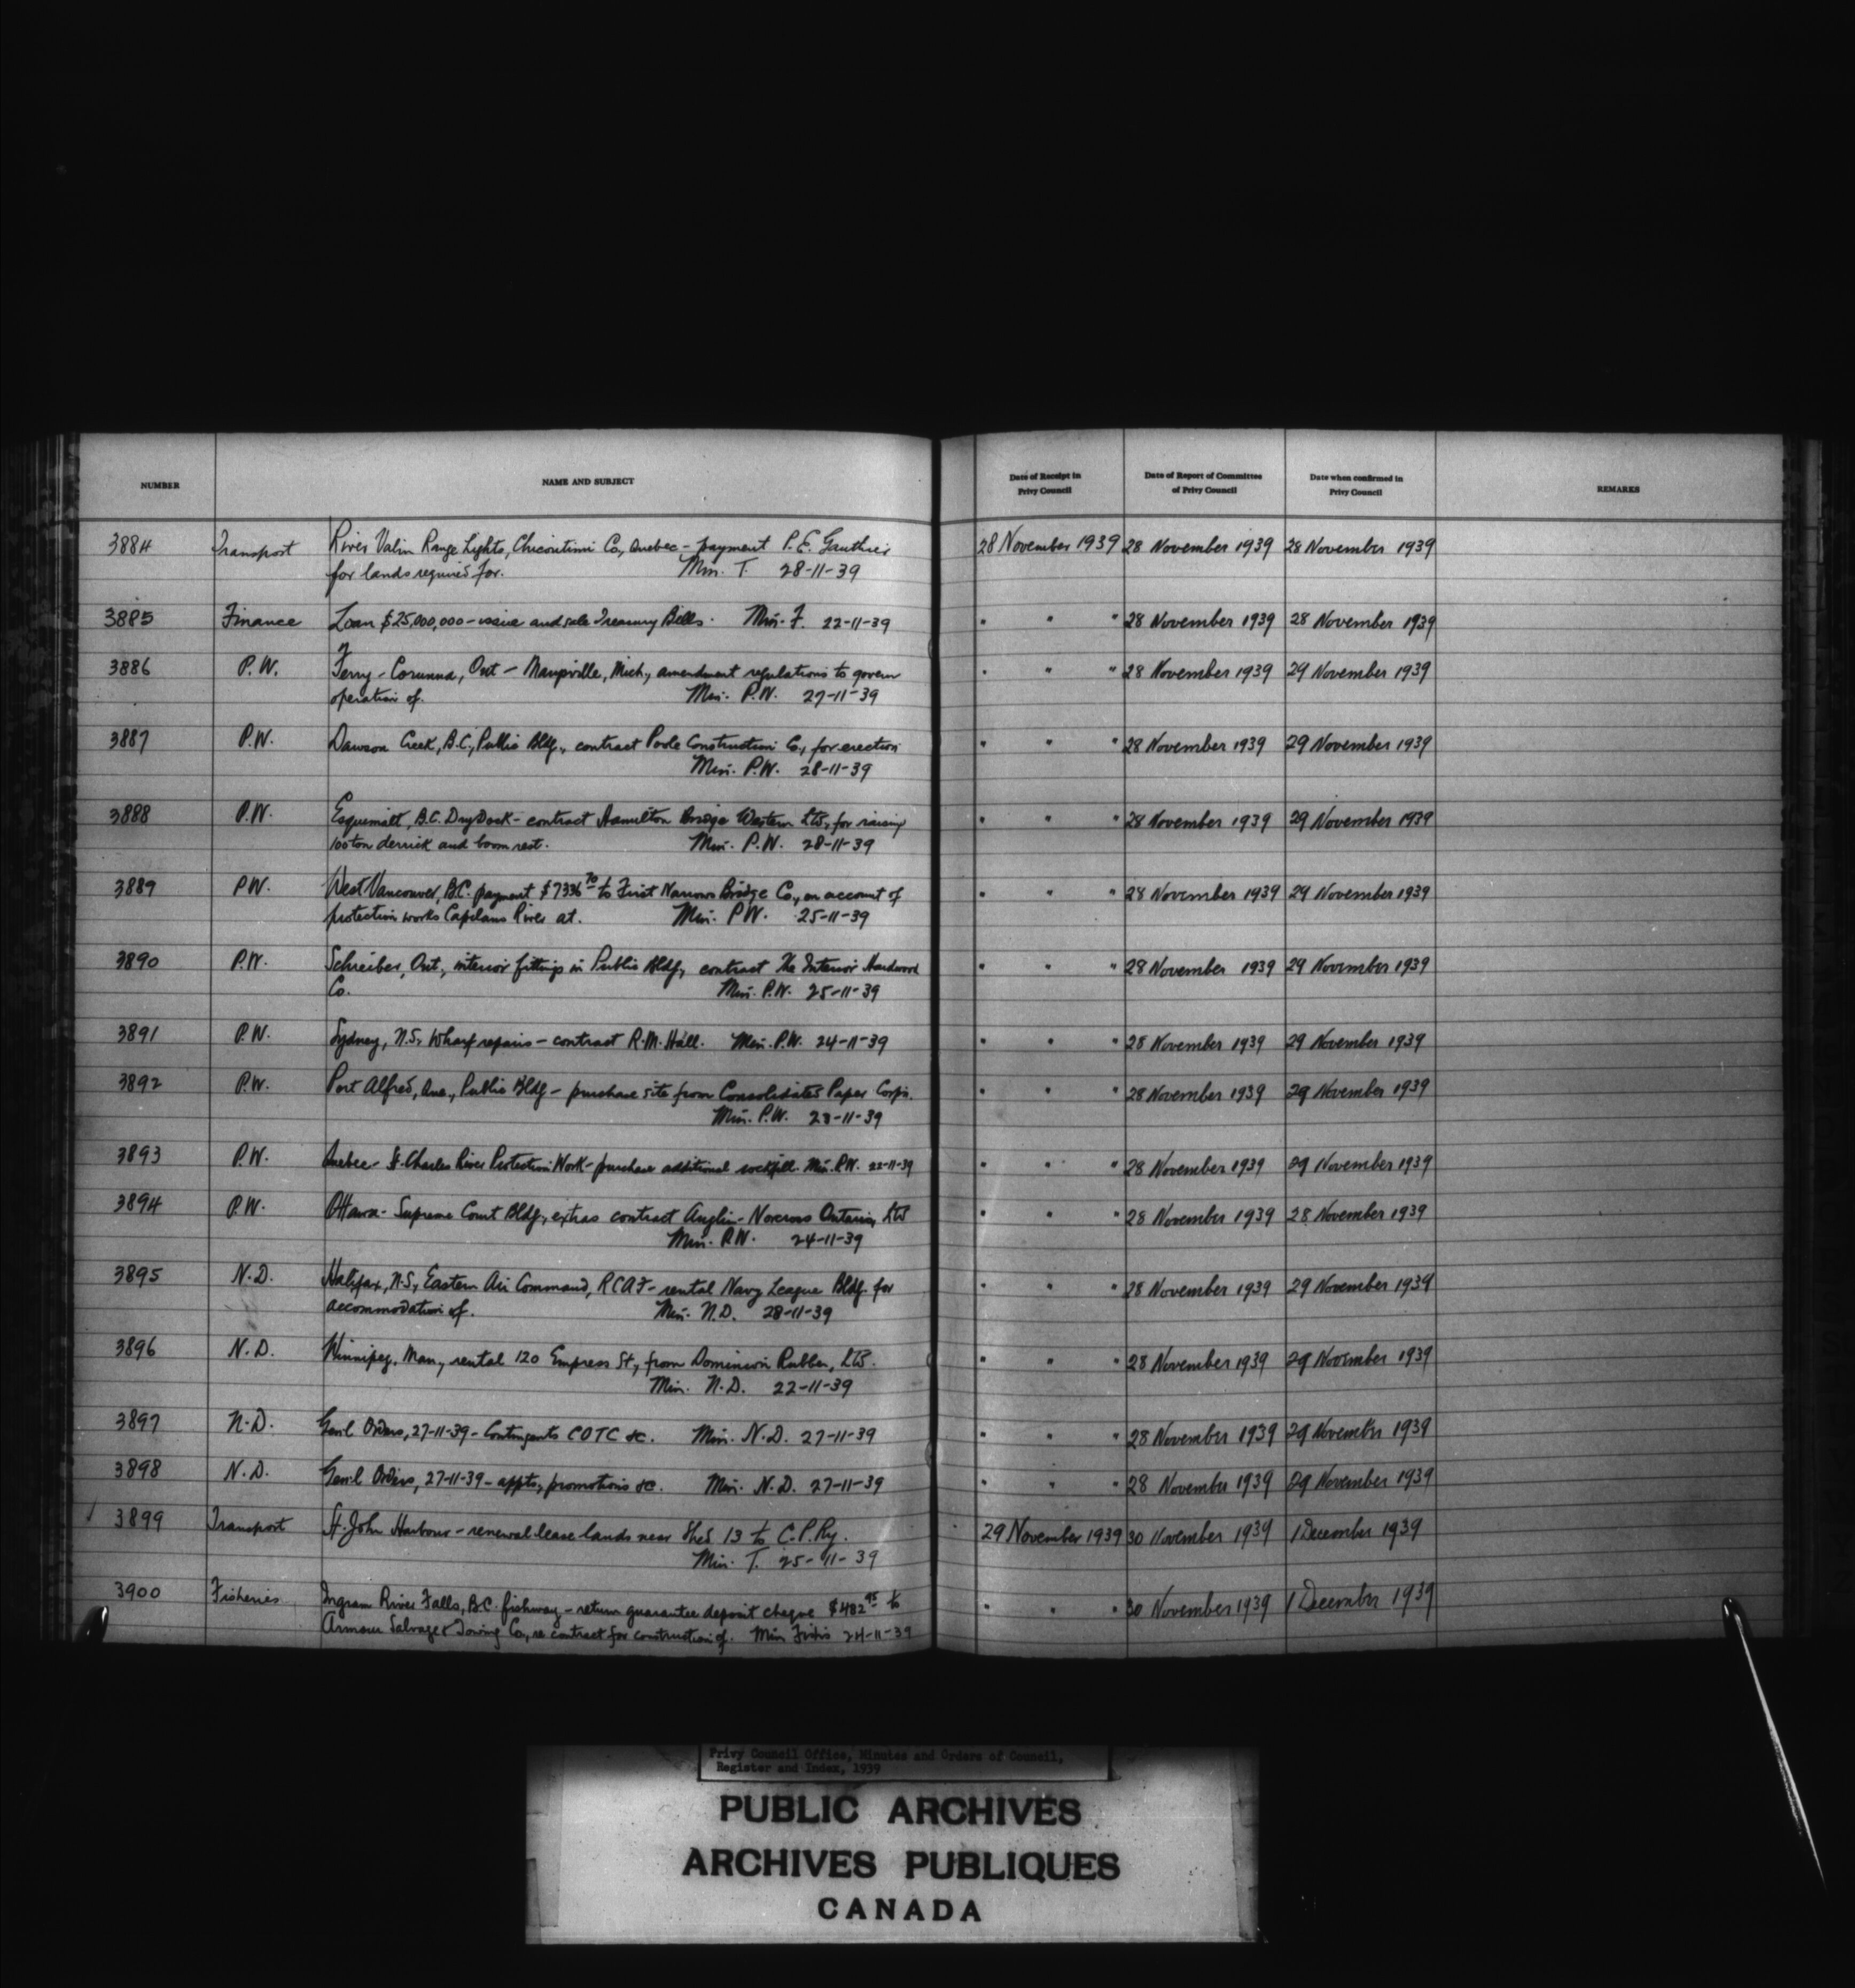 NUMBER NAME AND SUBJECT Date of Receipt in Privy Council Date of Report of Committee of Privy Council Date when confirmed in Privy Council REMARKS
3884 Transport River Valin Range Lights, Chicoutimi Co., Quebec - payment P.E. Gauthier 28 November 1939 28 November 1939 28 November 1939
for lands required for. Min. T. 28-11-39
3885 Finance Loan $25,000,000 - issue and sale Treasury Bills. Min. F. 22-11-39 " " " 28 November 1939 28 November 1939
3886 P.W. Ferry - Corunna, Ont - Marysville, Mich., amendment regulations to govern " " " 28 November 1939 29 November 1939
operation of. Min. P.W. 27-11-39
3887 P.W. Dawson Creek, B.C., Public Bldg., contract Poole Construction Co., for erection " " " 28 November 1939 29 November 1939
Min. P.W. 28-11-39
3888 P.W. Esquimalt, B.C. Dry Dock - contract Hamilton Bridge Western Ltd., for raising " " " 28 November 1939 29 November 1939
100 ton derrick and boom rest. Min. P.W. 28-11-39
3889 P.W. West Vancouver, B.C. payment $7336.70 to First Narrows Bridge Co., on account of " " " 28 November 1939 29 November 1939
protection works Capilano River at. Min. P.W. 25-11-39
3890 P.W. Schreiber, Ont., interior fittings in Public Bldg., contract The Interior Hardwood " " " 28 November 1939 29 November 1939
Co. Min. P.W. 25-11-39
3891 P.W. Sydney, N.S. Wharf repairs - contract R.M. Hall. Min. P.W. 24-11-39 " " " 28 November 1939 29 November 1939
3892 P.W. Port Alfred, Que., Public Bldg - purchase site from Consolidated Paper Corp. " " " 28 November 1939 29 November 1939
Min. P.W. 23-11-39
3893 P.W. Quebec - St. Charles River Protection Work - purchase additional rockfill. Min. P.W. 22-11-39 " " " 28 November 1939 29 November 1939
3894 P.W. Ottawa - Supreme Court Bldg., extras contract Anglin-Norcross Ontario, Ltd " " " 28 November 1939 28 November 1939
Min. P.W. 24-11-39
3895 N.D. Halifax, N.S., Eastern Air Command, RCAF - rental Navy League Bldg. for " " " 28 November 1939 29 November 1939
accommodation of. Min. N.D. 28-11-39
3896 N.D. Winnipeg, Man., rental 120 Empress St., from Dominion Rubber, Ltd. " " " 28 November 1939 29 November 1939
Min. N.D. 22-11-39
3897 N.D. Genl Orders, 27-11-39 - Contingents COTC &c. Min. N.D. 27-11-39 " " " 28 November 1939 29 November 1939
3898 N.D. Genl Orders, 27-11-39 - appts., promotions &c. Min. N.D. 27-11-39 " " " 28 November 1939 29 November 1939
3899 Transport St. John Harbour - renewal lease lands near Shed 13 to C.P.Ry. 29 November 1939 30 November 1939 1 December 1939
Min. T. 25-11-39
3900 Fisheries Ingram River Falls, B.C. fishway - return guarantee deposit cheque $482.95 to " " " 30 November 1939 1 December 1939
Armour Salvage & Towing Co., re contract for construction of. Min 24-11-39
Privy Council Office, Minutes and Orders of Council,
Register and Index, 1939
PUBLIC ARCHIVES
ARCHIVES PUBLIQUES
CANADA